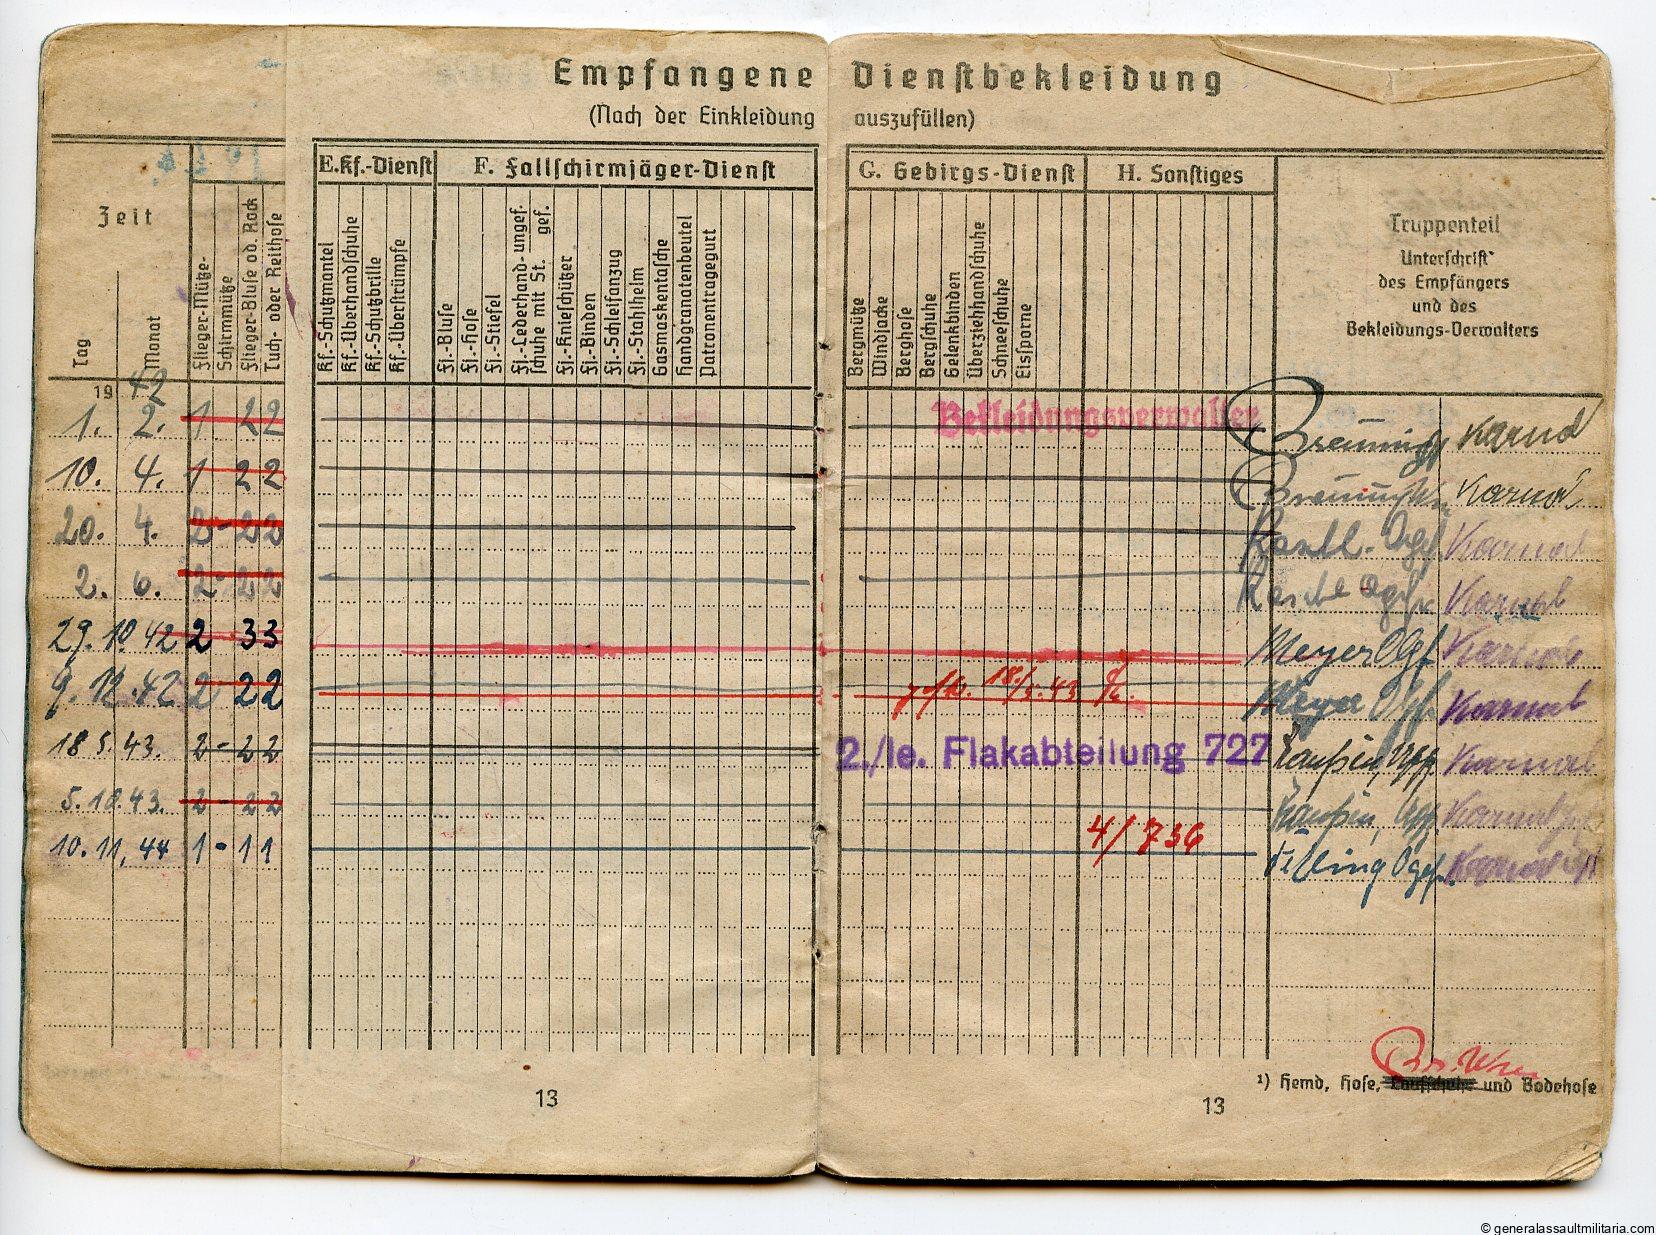 Empfangene Dienstbekleidung
(Nach der Einkleidung auszufüllen)
Zeit
Tag
Monat
Flieger-Mütze-
Schirmmütze
Flieger-Bluse od. Rock
Tuch- oder Reithose
E. Kf.-Dienst
Kf.-Schutzmantel
Kf.-Überhandschuhe
Kf.-Schutzbrille
Kf.-Überstrümpfe
F. Fallschirmjäger-Dienst
Fj.-Bluse
Fj.-Hose
Fj.-Stiefel
Fj.-Lederhand- ungef.
schuhe mit St. gef.
Fj.-Knieschützer
Fj.-Binden
Fj.-Schleifanzug
Fj.-Stahlhelm
Gasmaskentasche
Handgranatenbeutel
Patronentragegurt
G. Gebirgs-Dienst
Bergmütze
Windjacke
Berghose
Bergschuhe
Gelenkbinden
Überziehhandschuhe
Schneeschuhe
Eissporne
H. Sonstiges
Truppenteil
Unterschrift
des Empfängers
und des
Bekleidungs-Verwalters
19 42
1. 2. 1 2 2 Bekleidungsverwalter
10. 4. 1 2 2
20. 4. 2 - 2 2
2. 6. 2 - 2 2
29. 10. 42 2 - 3 3 Meyer Ogf.
9. 12. 42 2 - 2 2 18./5. 43 Meyer Ogf.
18. 5. 43. 2 - 2 2 2./le. Flakabteilung 727
5. 10. 43. 2 - 2 2
10. 11. 44 1 - 1 1 4/736
¹) Hemd, Hose, Laufschuhe und Badehose
13
13
© generalassaultmilitaria.com